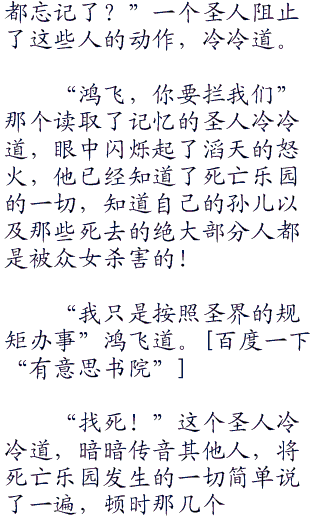 都忘记了？”一个圣人阻止
了这些人的动作，冷冷道。
“鸿飞，你要拦我们”
那个读取了记忆的圣人冷冷
道，眼中闪烁起了滔天的怒
火，他已经知道了死亡乐园
的一切，知道自己的孙儿以
及那些死去的绝大部分人都
是被众女杀害的！
“我只是按照圣界的规
矩办事”鸿飞道。[百度一下
“有意思书院”]
“找死！”这个圣人冷
冷道，暗暗传音其他人，将
死亡乐园发生的一切简单说
了一遍，顿时那几个